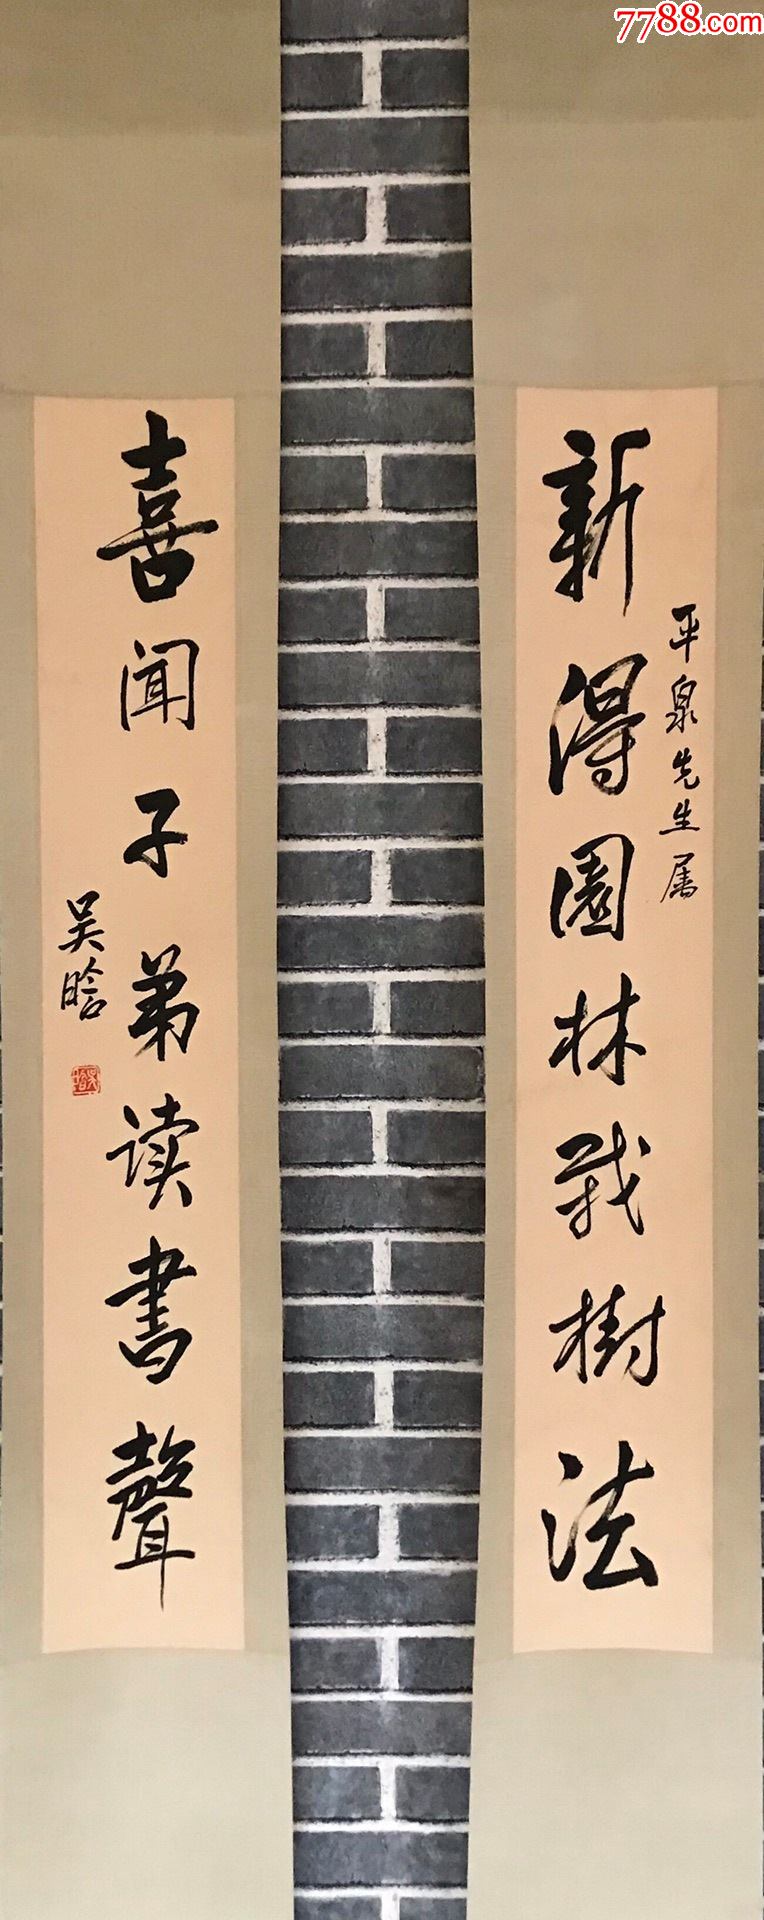 7788.com
新得園林栽樹法
平泉先生属
喜闻子弟读書聲
吴晗